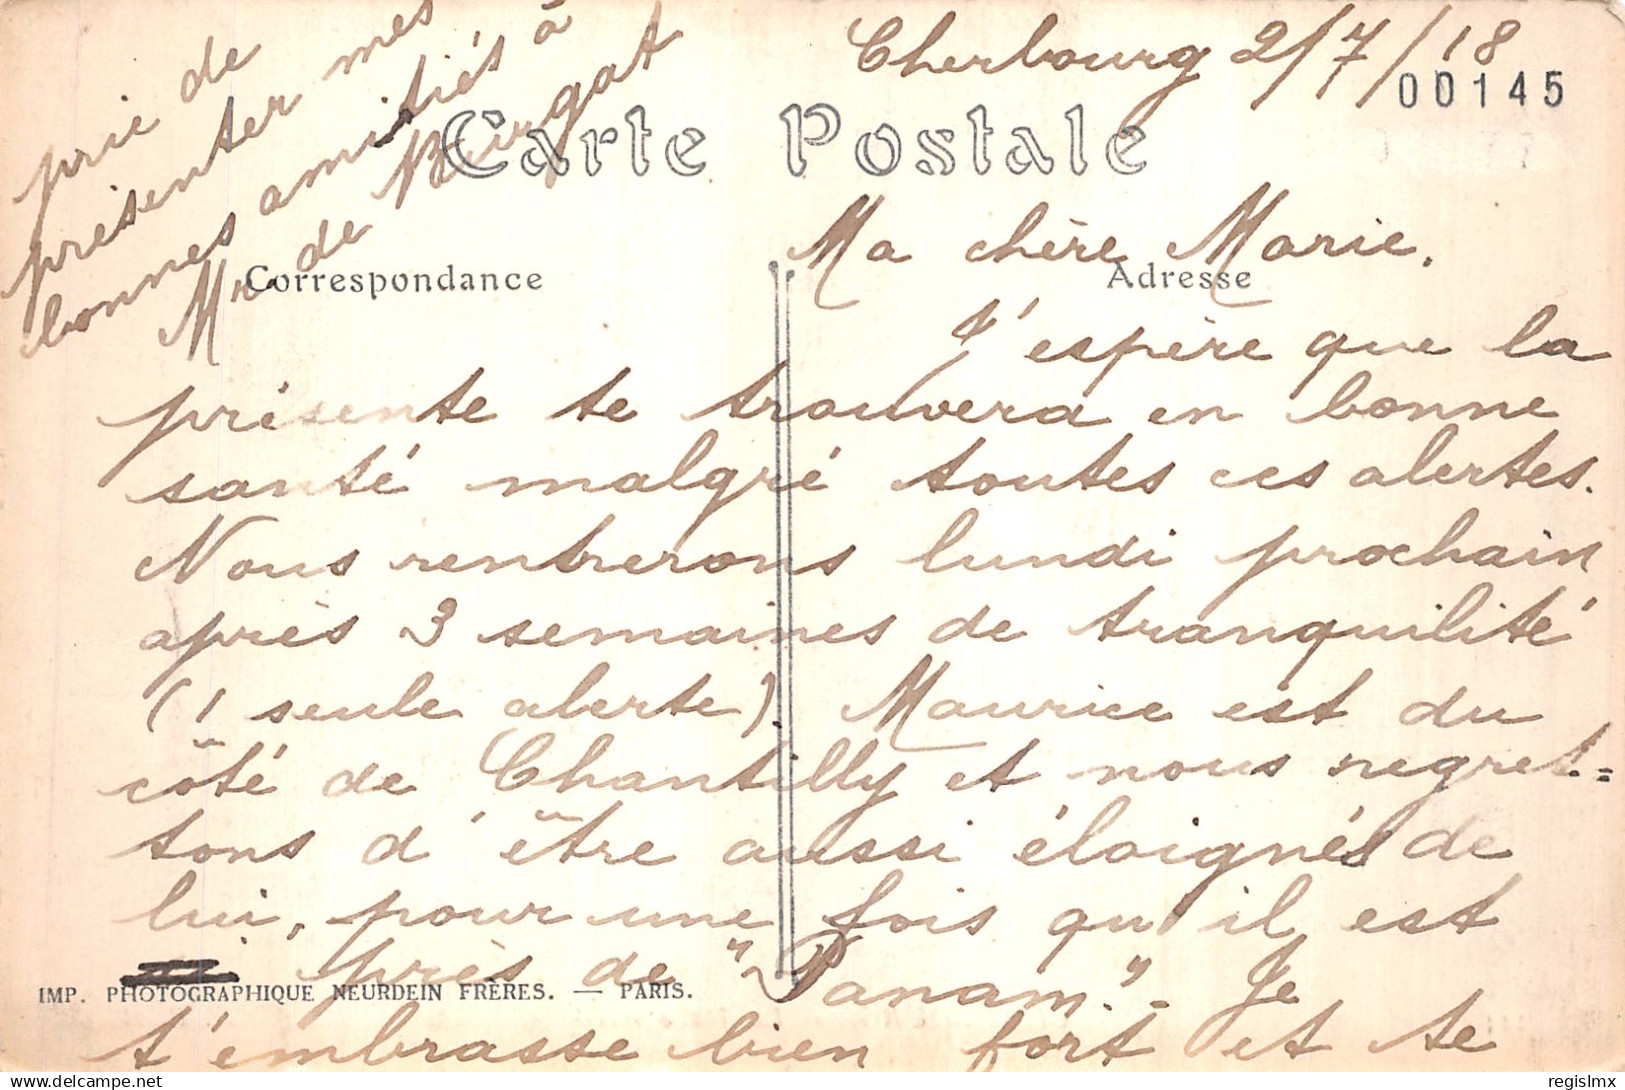 Cherbourg 2/7/18
00145
Carte Postale
Correspondance
Adresse
Ma chère Marie.
J'espère que la
présente te trouvera en bonne
santé malgré toutes ces alertes.
Nous rentrerons lundi prochain
après 3 semaines de tranquilité
(1 seule alerte). Maurice est du
côté de Chantilly et nous regret-
tons d'être aussi éloignés de
lui, pour une fois qu'il est
près de "Panam". - Je
IMP. PHOTOGRAPHIQUE NEURDEIN FRÈRES. — PARIS.
t'embrasse bien fort et te
prie de
présenter mes
bonnes amitiés à
Mr de
regislmx